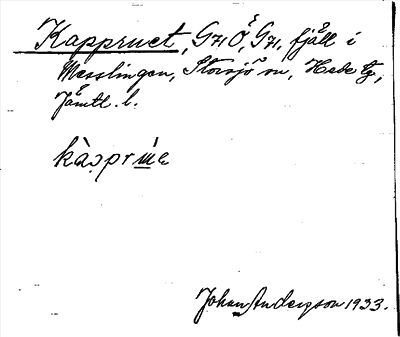 Kappruet, G71Ö, G71, fjäll i
Messlingen, Storsjö sn, Hede tg,
Jämtl. l.
kàpprɯ́e
Johan Anderson 1933.